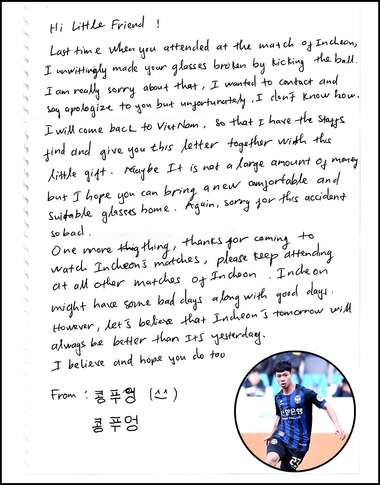 Hi Little Friend !
Last time when you attended at the match of Incheon,
I unwittingly made your glasses broken by kicking the ball.
I am really sorry about that, I wanted to contact and
say apologize to you but unfortunately, I don't know how.
I will come back to Vietnam. So that I have the staffs
find and give you this letter together with this
little gift. Maybe It is not a large amount of money
but I hope you can bring a new comfortable and
suitable glasses home. Again, sorry for this accident
so bad.
One more thing, thanks for coming to
watch Incheon's matches, please keep attending
at all other matches of Incheon. Incheon
might have some bad days along with good days.
However, let's believe that Incheon's tomorrow will
always be better than its yesterday.
I believe and hope you do too
From : 콩푸엉 (^^)
콩푸엉
신한은행
23